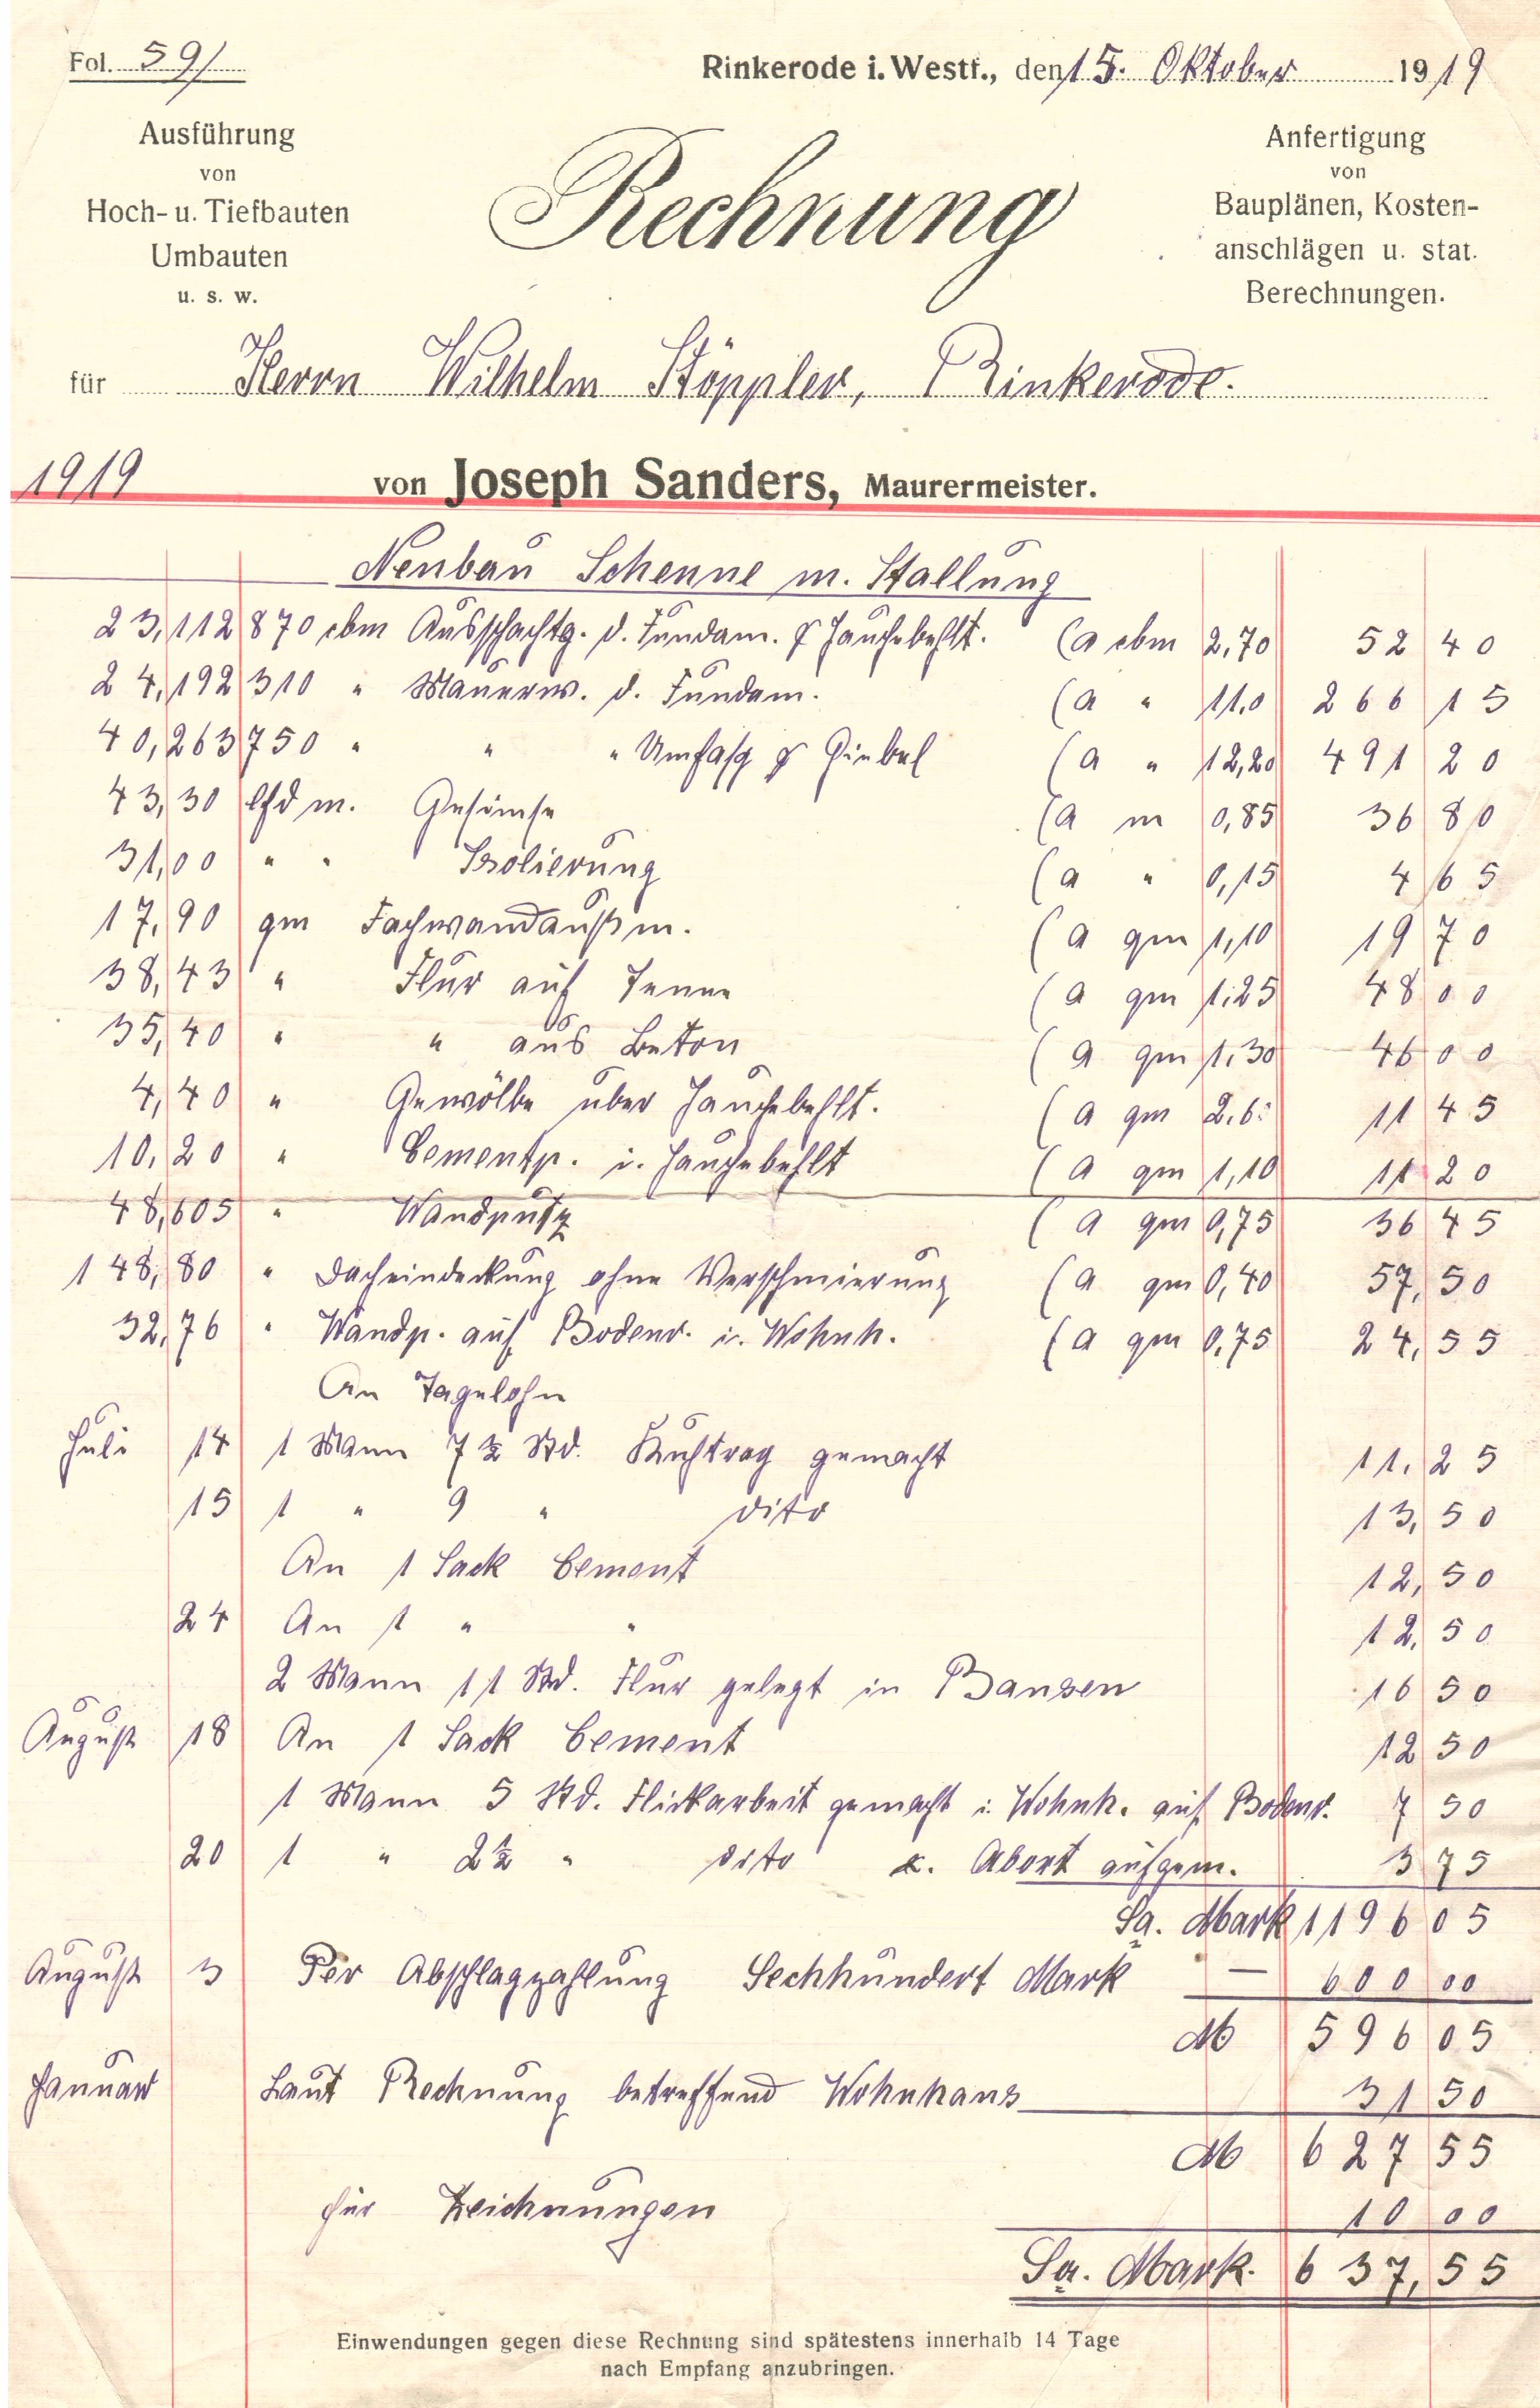 Fol. 59/
Rinkerode i. Westf., den 15. Oktober 1919
Ausführung
von
Hoch- u. Tiefbauten
Umbauten
u. s. w.
Rechnung
Anfertigung
von
Bauplänen, Kosten-
anschlägen u. stat.
Berechnungen.
für Herrn Wilhelm Stöppler, Rinkerode.
1919 von Joseph Sanders, Maurermeister.
Neubau Scheune m. Stallung
23,112870 cbm Ausschachtg. d. Fundam. Jauchebehlt. (a cbm 2,70 52 40
24,192310 " Mauerw. d. Fundam. (a " 11,0 266 15
40,263750 " " " Umfasg Giebel (a " 12,20 491 20
43,30 lfd m. Gesimse (a m 0,85 36 80
31,00 " " Isolierung (a " 0,15 4 65
17,90 qm Fachwandausm. (a qm 1,10 19 70
38,43 " Flur auf Tenne (a qm 1.25 48 00
35,40 " " aus Beton (a qm 1.30 46 00
4,40 " Gewölbe über Jauchebehlt. (a qm 2.6 11 45
10,20 " Cementp. i. Jauchebehlt (a qm 1,10 11 20
48,605 " Wandputz (a qm 0,75 36 45
148,80 " Dacheindeckung ohne Verschmierung (a qm 0,40 57,50
32,76 " Wandp. auf Bodenr. i. Wohnh. (a qm 0,75 24,55
An Tagelohn
Juli 14 1 Mann 7 ½ Std. Kuhtrog gemacht 11.25
15 1 " 9 " dito 13,50
An 1 Sack Cement 12,50
24 An 1 " " 12,50
2 Mann 11 Std. Flur gelegt in Bansen 16 50
August 18 An 1 Sack Cement 12 50
1 Mann 5 Std. Flickarbeit gemacht i. Wohnh. auf Bodenr. 7 50
20 1 " 2½ " dito Abort aufgem. 3 75
Sa. Mark 1196 05
August 3 Per Abschlagzahlung Sechhundert Mark — 600 00
M 596 05
Januar Laut Rechnung betreffend Wohnhaus 31 50
M 627 55
für Zeichnungen 10 00
Sa. Mark. 637,55
Einwendungen gegen diese Rechnung sind spätestens innerhalb 14 Tage
nach Empfang anzubringen.